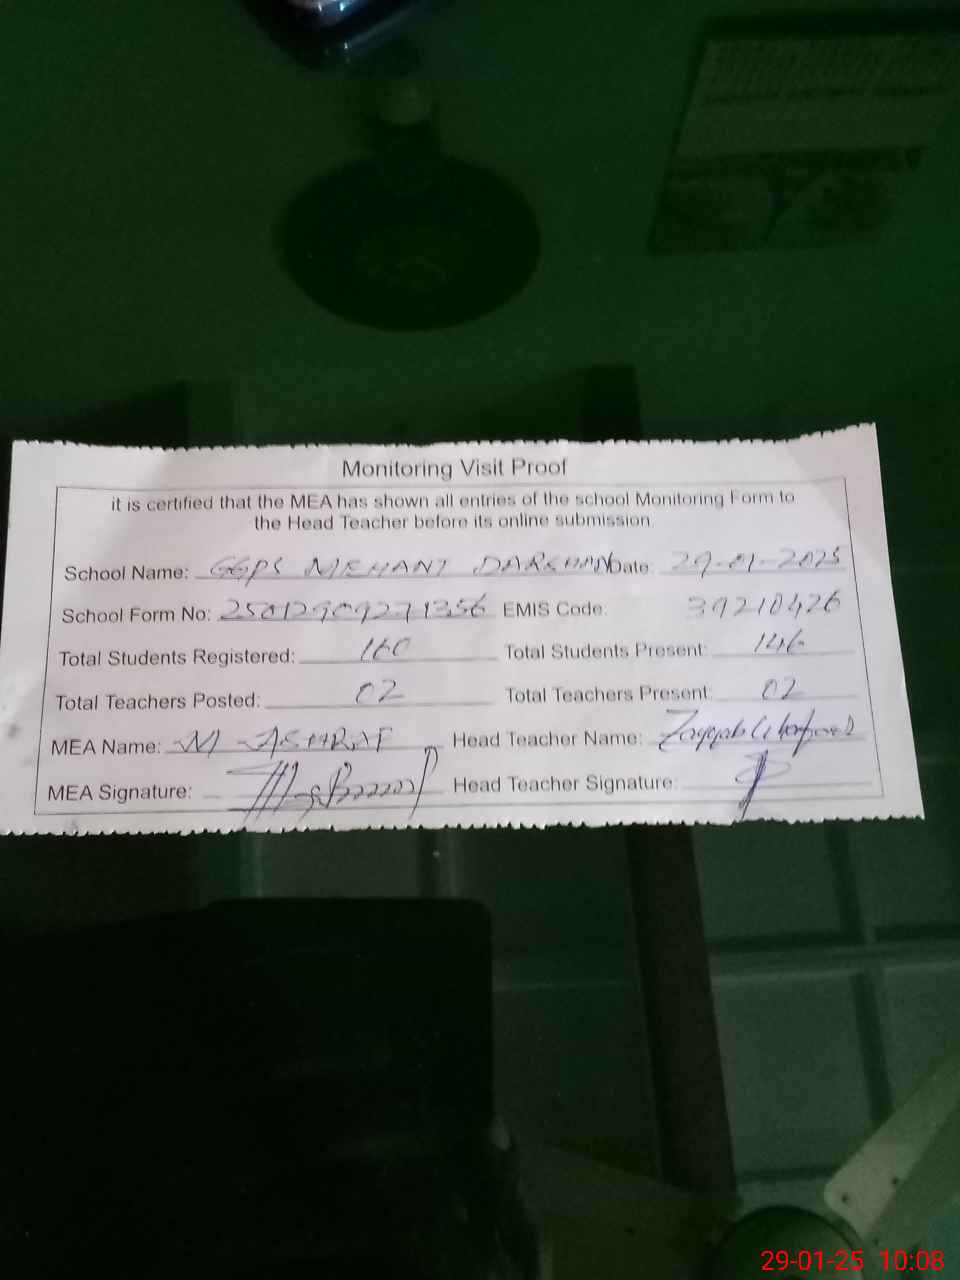 Monitoring Visit Proof
it is certified that the MEA has shown all entries of the school Monitoring Form to
the Head Teacher before its online submission
School Name: GGPS MEHANT DARSHAN Date: 29-01-2025
School Form No: 25012909271356 EMIS Code: 39210426
Total Students Registered: 160 Total Students Present: 146
Total Teachers Posted: 02 Total Teachers Present: 02
MEA Name: M ASHRAF Head Teacher Name:
MEA Signature: Head Teacher Signature:
29-01-25 10:08